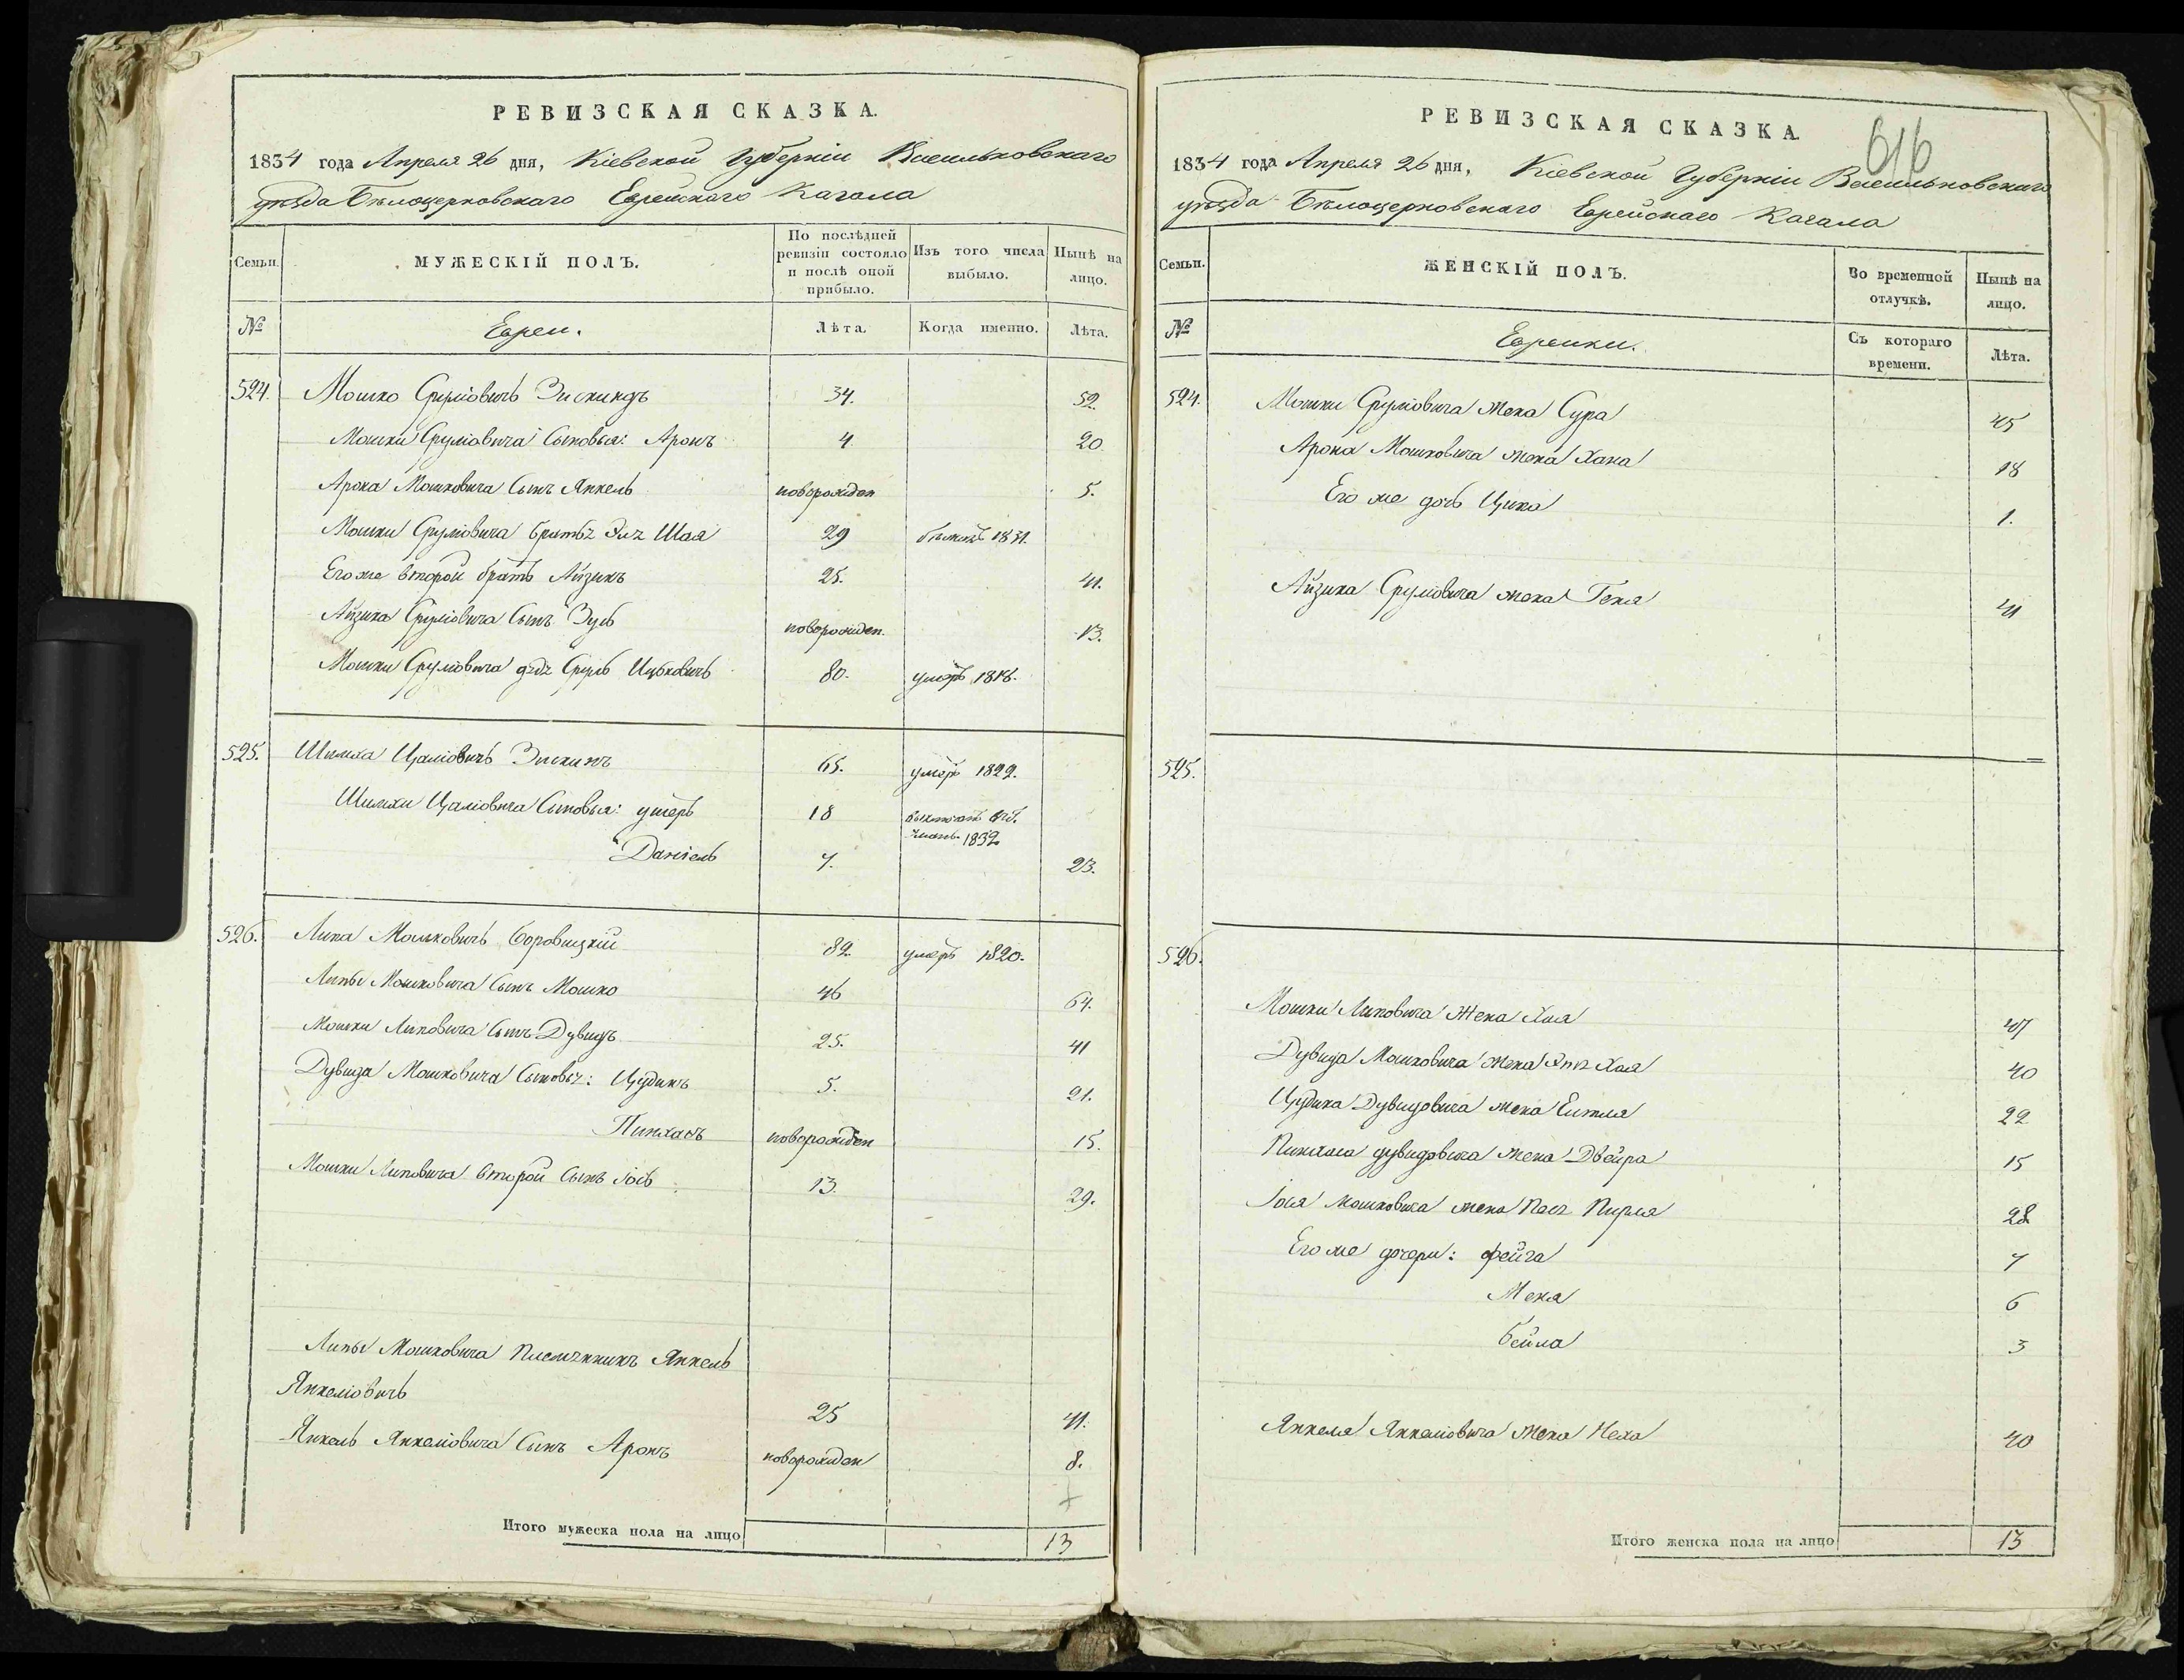 РЕВИЗСКАЯ СКАЗКА.
1834 года Апреля 26 дня, Кіевской Губерніи Васильковскаго
уѣзда Бѣлоцерковскаго Еврейскаго Кагала
Семьи.
МУЖЕСКІЙ ПОЛЪ.
По послѣдней ревизіи состояло и послѣ оной прибыло.
Изъ того числа выбыло.
Нынѣ на лицо.
№
Евреи.
Лѣта.
Когда именно.
Лѣта.
524. Мошко Сруліовичъ Зискиндъ 34. 52
Мошки Сруліовича Сыновья: Аронъ 4 20
Арона Мошковича Сынъ Янкель новорожден 5.
Мошки Сруліовича братъ Шая 29 1831.
Его же второй братъ Айзикъ 25. 41.
Айзика Сруліовича Сынъ Зусь новорожден. 13.
Мошки Сруліовича дѣдъ Сруль Ицковичъ 80. умеръ 1818.
525. Шимха Цаліовичъ Зискинъ 65. умеръ 1822.
Шимхи Цаліовича Сыновья: 18 1832
Даніель 7. 23.
526. Липа Мошковичъ Боровицкій 82. умеръ 1820.
Липы Мошковича Сынъ Мошко 46 64.
Мошки Липовича Сынъ Дувидъ 25. 41
Дувида Мошковича Сыновья: Цудикъ 5. 21.
Пинхасъ новорожден 15.
Мошки Липовича второй Сынъ Іось 13. 29.
Липы Мошковича племянникъ Янкель
Янкеліовичъ 25 41.
Янкель Янкеліовича Сынъ Аронъ новорожден 8.
Итого мужеска пола на лицо 13
616
РЕВИЗСКАЯ СКАЗКА.
1834 года Апреля 26 дня, Кіевской Губерніи Васильковскаго
уѣзда Бѣлоцерковскаго Еврейскаго Кагала
Семьи.
ЖЕНСКІЙ ПОЛЪ.
Во временной отлучкѣ.
Нынѣ на лицо.
№
Еврейки.
Съ котораго времени.
Лѣта.
524. Мошки Сруліовича жена Сура 45
Арона Мошковича жена Хана 18
Его же дочь Ципа 1.
Айзика Сруліовича жена Геня 41
525.
526.
Мошки Липовича жена Хая 47
Дувида Мошковича жена Хая 40
Цудика Дувидовича жена Ейтля 22
Пинхаса дувидовича жена Двейра 15
Іося Мошковича жена Перля 28
Его же дочери: фейга 7
Меня 6
бейла 3
Янкеля Янкеліовича жена Неха 40
Итого женска пола на лицо 13